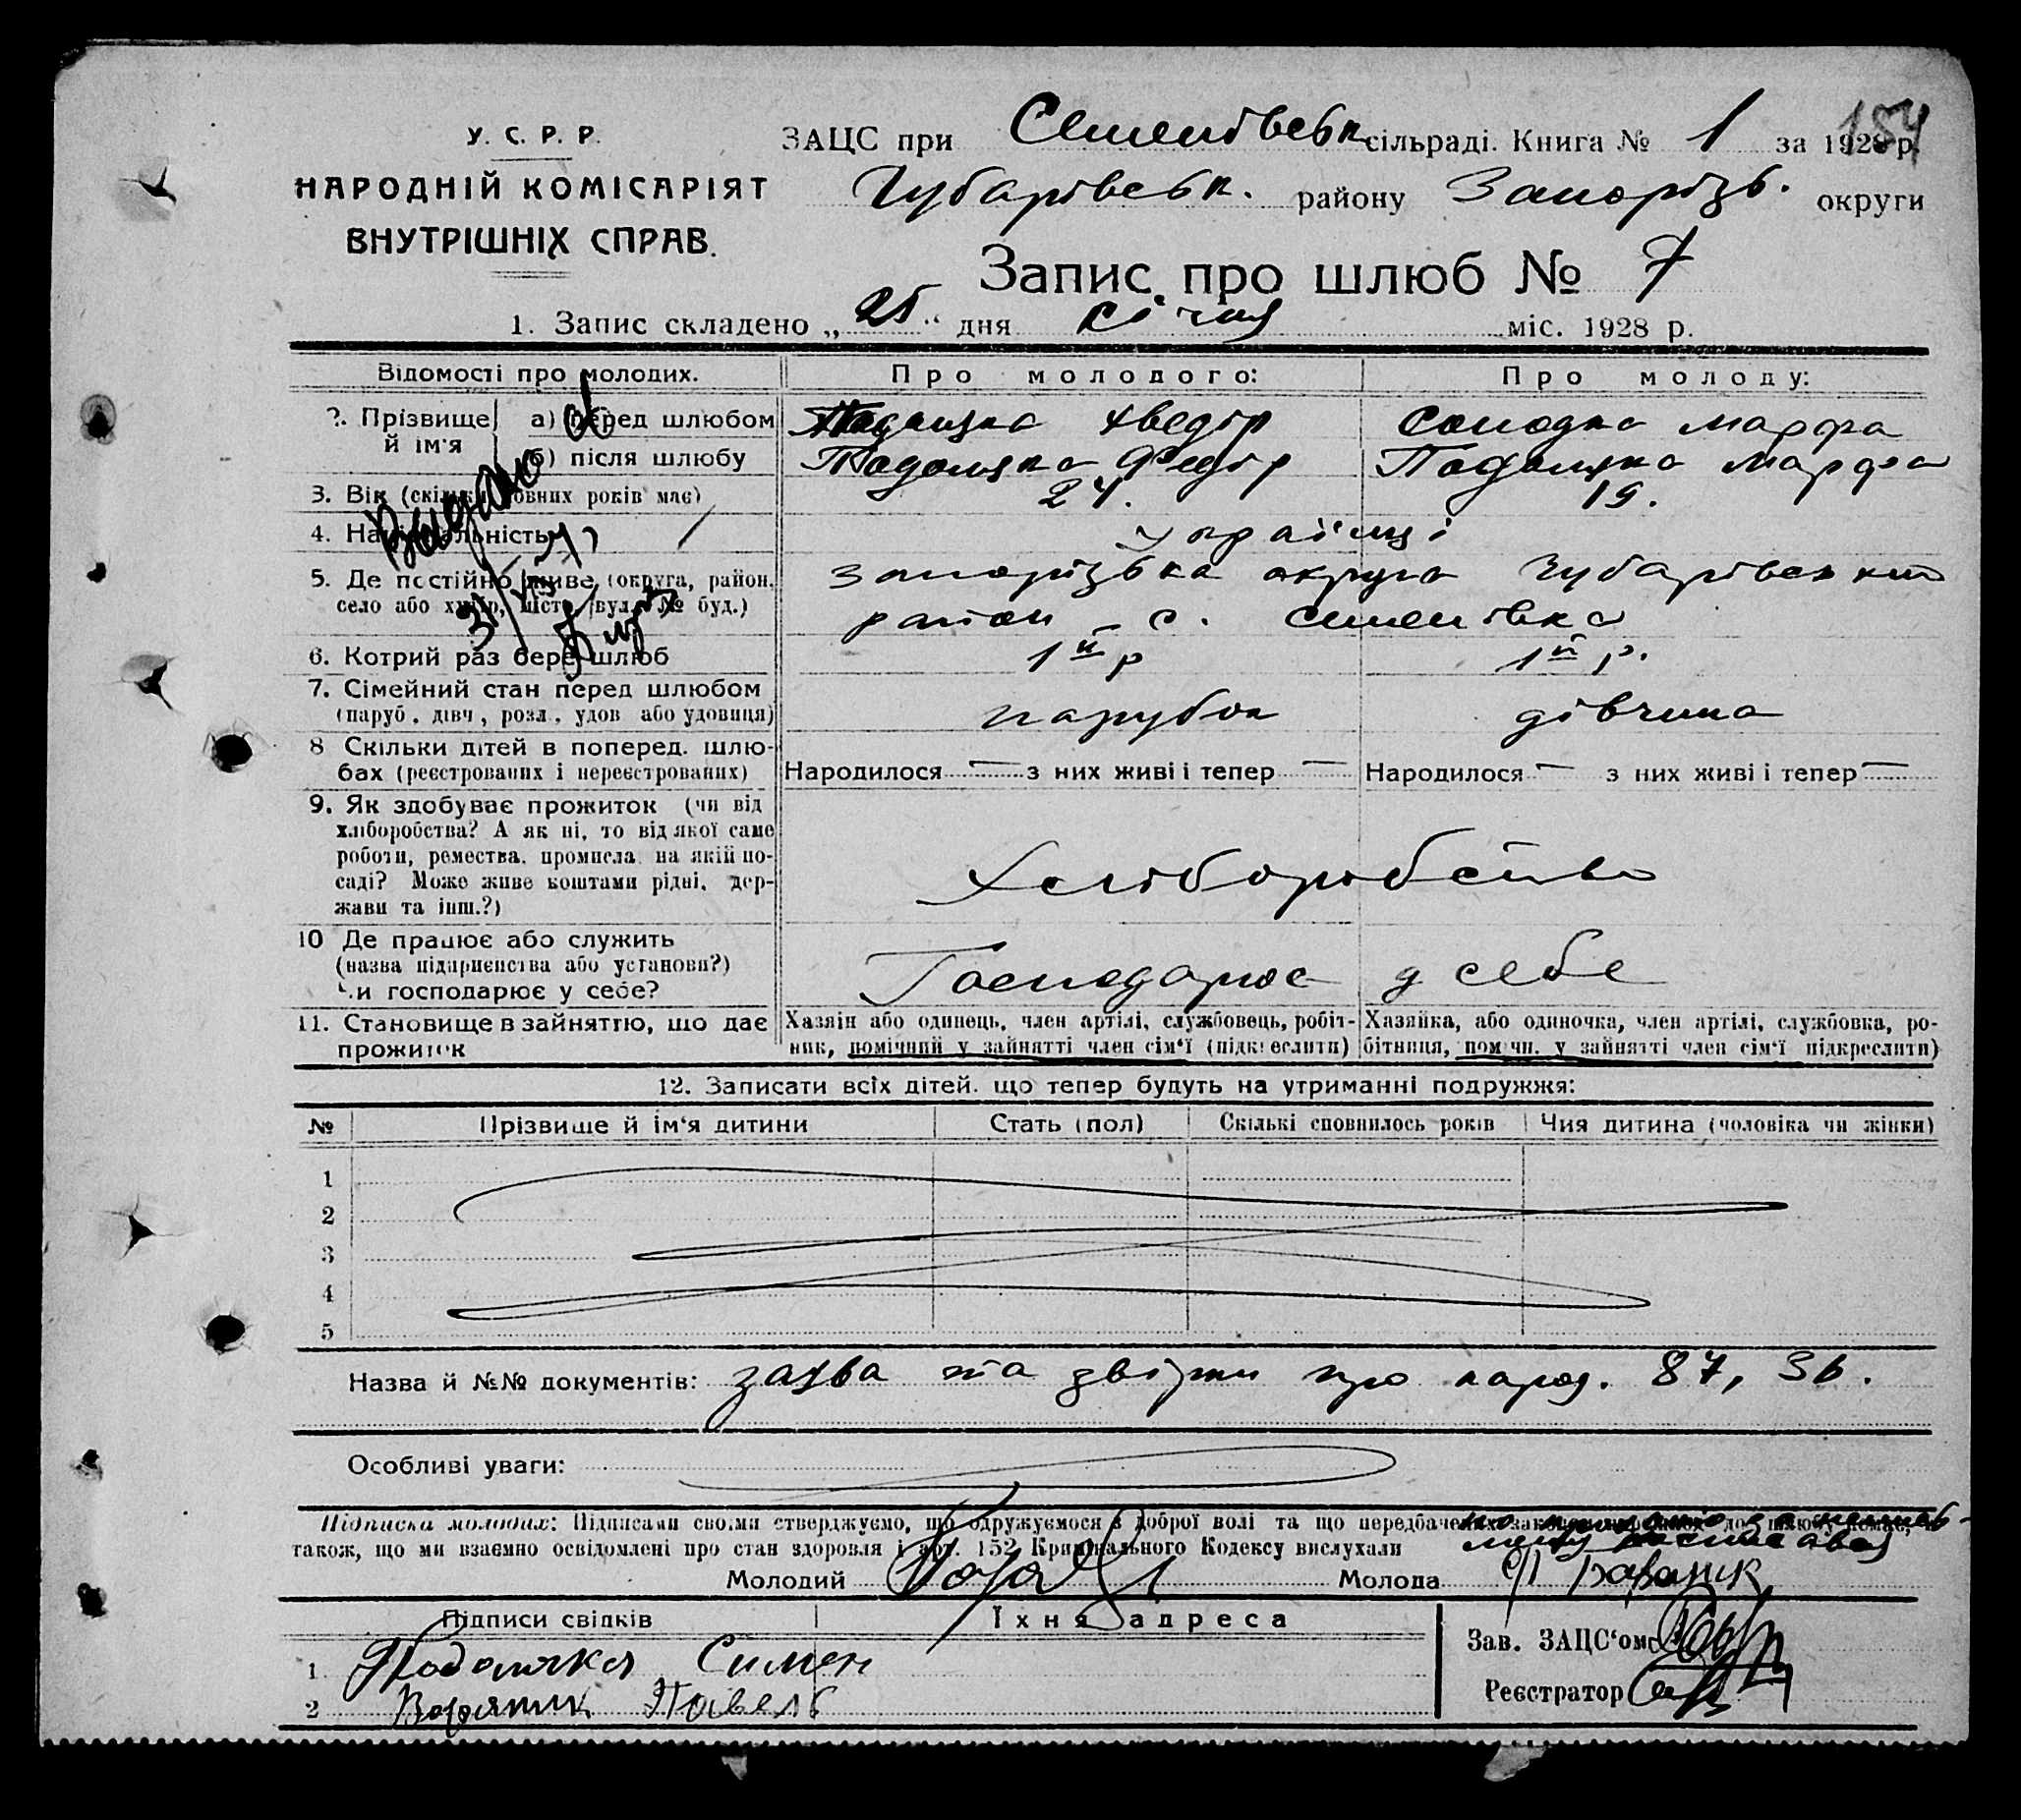 154
У. С. Р. Р.
НАРОДНІЙ КОМІСАРІЯТ
ВНУТРІШНІХ СПРАВ.
ЗАЦС при Семенівськ сільраді. Книга № 1 за 1928 р.
Чубарівськ. району Запорізь. округи
Запис про шлюб № 7
1. Запис складено „25“ дня січня міс. 1928 р.
Відомості про молодих. Про молодого: Про молоду:
2. Прізвище й ім'я
а) перед шлюбом Подоляка Хведір Солодка Марфа
б) після шлюбу Подоляка Федір Подоляка Марфа
3. Вік (скільки повних років має) 24. 19.
4. Національність українці
5. Де постійно живе (округа, район, Запорізька округа Чубарівський
село або хутір, місто, вул. № буд.) район с. Семенівка
Видано
6. Котрий раз бере шлюб 1й р 1й р.
7. Сімейний стан перед шлюбом
(паруб., дівч., розл., удов. або удовиця) парубок дівчина
8 Скільки дітей в поперед. шлю-
бах (реєстрованих і нереєстрованих) Народилося — з них живі і тепер — Народилося — з них живі і тепер —
9. Як здобуває прожиток (чи від
хліборобства? А як ні, то від якої саме
роботи, ремества, промисла на якій по-
саді? Може живе коштами рідні, дер-
жави та інш.?)
Хліборобство
10 Де працює або служить
(назва підприємства або установи?)
Чи господарює у себе?
Господарює у себе
11. Становище в зайняттю, що дає
прожиток
Хазяїн або одинець, член артілі, службовець, робіт-
ник, помічний у зайнятті член сім'ї (підкреслити)
Хазяйка, або одиночка, член артілі, службовка, ро-
бітниця, помічн. у зайнятті член сім'ї підкреслити)
12. Записати всіх дітей, що тепер будуть на утриманні подружжя:
№ Прізвище й ім'я дитини Стать (пол) Скількі сповнилось років Чия дитина (чоловіка чи жінки)
1
2
3
4
5
Назва й №№ документів: заява та звірки про народ. 87, 36.
Особливі уваги:
Підписка молодих: Підписами своїми стверджуємо, що одружуємося з доброї волі та що передбачених законом перешкод до шлюбу немає, а
також, що ми взаємно освідомлені про стан здоровля і арт. 152 Кримінального Кодексу вислухали
Молодий Молода
Підписи свідків Їхня адреса
Зав. ЗАЦС'ом
1 Подоляка Симен
Реєстратор
2 Павель